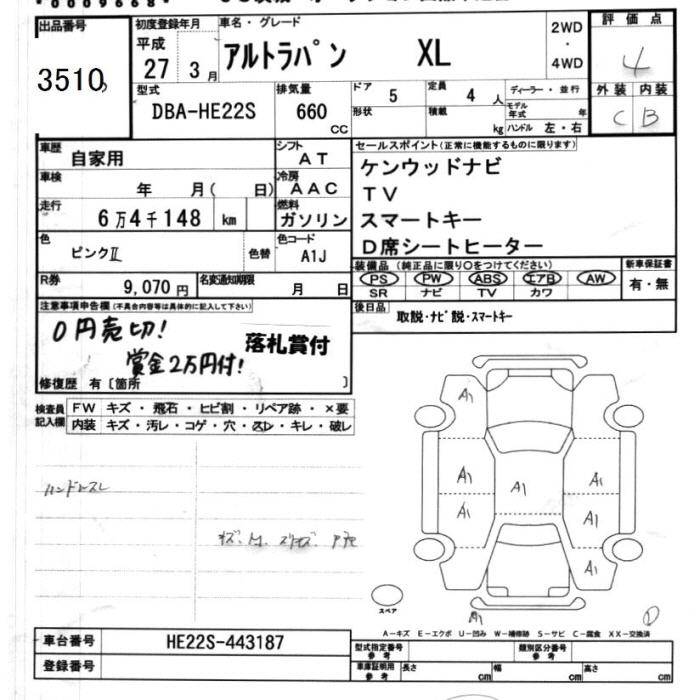 出品番号 初度登録年月 車名・グレード 2WD・4WD 評価点
3510 平成 27 3月 アルトラパン XL 4
型式 排気量 ドア 5 定員 4人 ディーラー・並行 外装 内装
DBA-HE22S 660 CC 形状 積載 kg モデル年式 年 ハンドル 左・右 C B
車歴 自家用 シフト AT セールスポイント(正常に機能するものに限ります)
車検 年 月( 日) 冷房 AAC ケンウッドナビ
TV
走行 6万4千148 km 燃料 ガソリン スマートキー
色 ピンクⅡ 色替 色コード A1J D席シートヒーター
装備品(純正品に限り○をつけてください) 新車保証書
PS PW ABS エアB AW 有・無
SR ナビ TV カワ
R券 9,070円 名変通知期限 月 日
後日品 取説・ナビ説・スマートキー
注意事項申告欄(不具合内容等は具体的に記入して下さい)
0円売切!
賞金2万円付! 落札賞付
修復歴 有〔箇所 〕
検査員記入欄 FW キズ・飛石・ヒビ割・リペア跡・×要
内装 キズ・汚レ・コゲ・穴・スレ・キレ・破レ
A1
A1 A1 A1
A1 A1
A1
ハンドルスレ
スペア
A1
A-キズ E-エクボ U-凹み W-補修跡 S-サビ C-腐食 XX-交換済
車台番号 HE22S-443187 型式指定番号 参考 類別区分番号 参考
登録番号 車庫証明用 参考 長さ cm 幅 cm 高さ cm